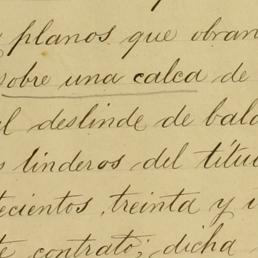 planos que obran
sobre una calca de
el deslinde de bald
linderos del títu
ecientos, treinta y
contrato; dicha